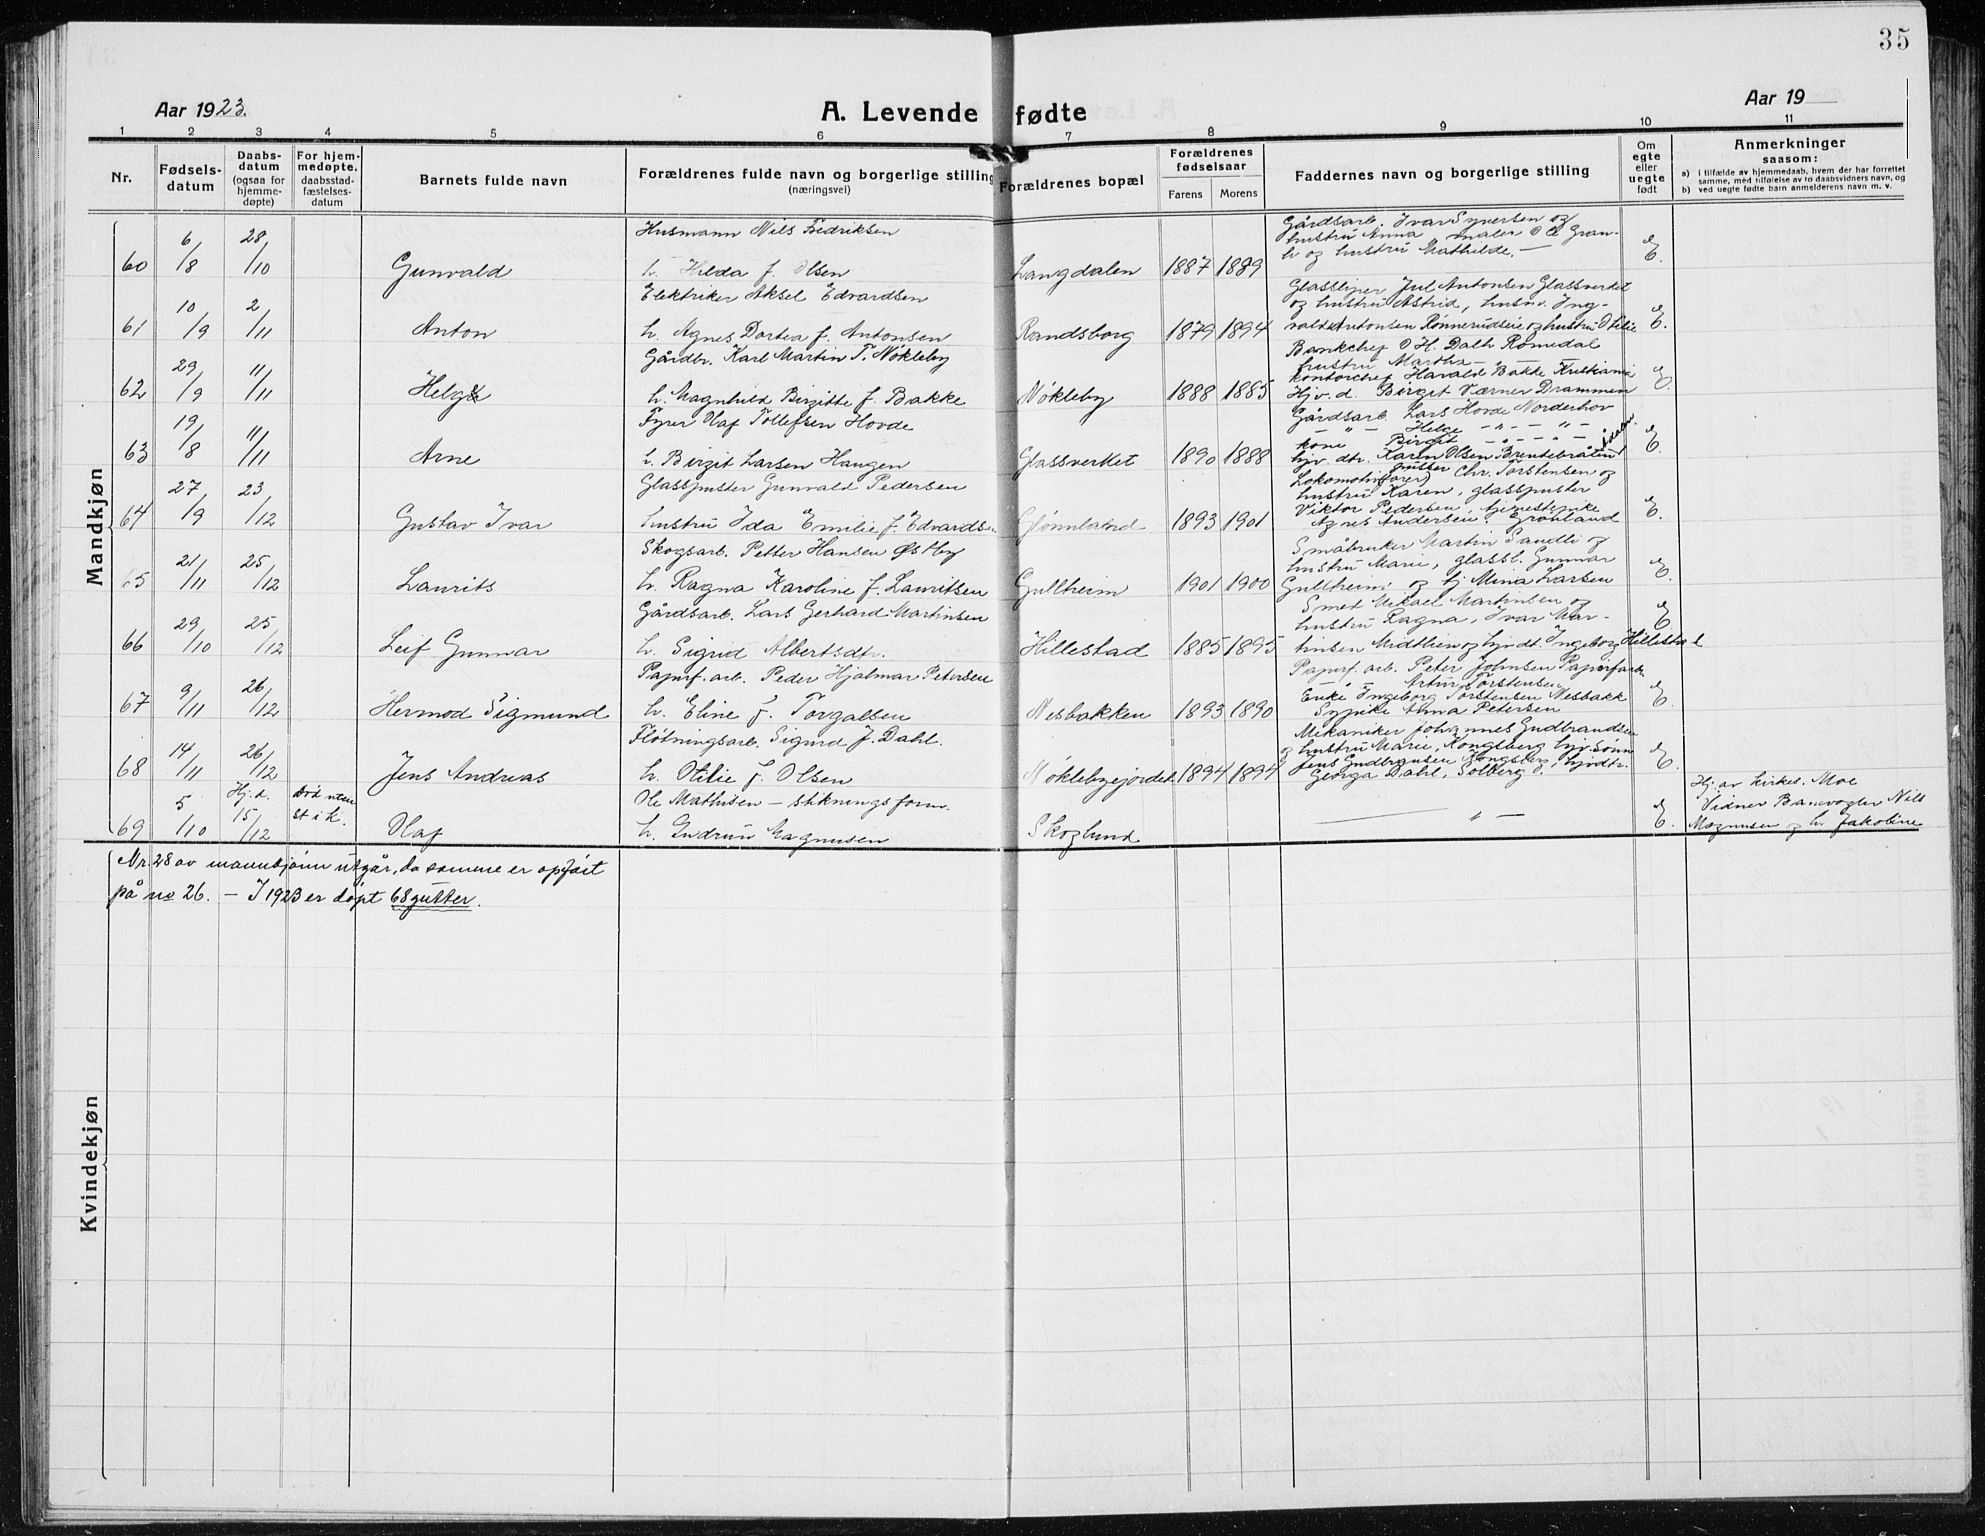 35
Aar 1923.
A. Levende fødte
Aar 19
1 2 3 4 5 6 7 8 9 10 11
Nr.
Fødsels-
datum
Daabs-
datum
(ogsaa for
hjemme-
døpte)
For hjem-
medøpte,
daabsstad-
fæstelses-
datum
Barnets fulde navn
Forældrenes fulde navn og borgerlige stilling
(næringsvei)
Forældrenes bopæl
Forældrenes
fødselsaar
Farens Morens
Faddernes navn og borgerlige stilling
Om
egte
eller
uegte
født
Anmerkninger
saasom:
a) i tilfælde av hjemmedaab, hvem der har forrettet
samme, med tilføielse av to daabsvidners navn, og
b) ved uegte fødte barn anmelderens navn m. v.
Mandkjøn
60 6/8 28/10 Gunvald
Husmann Nils Fredriksen
h. Hilda f. Olsen
Langdalen 1887 1889
Gårdsarb. Ivar Syversen og
hustru Anna maler O Gran-
h og hustru Mathilde. —
E.
61 10/9 2/11 Anton
Elektriker Aksel Edvardsen
h. Agnes Dortea f. Antonsen
Randsborg 1879 1894
Glassliper Jul Antonsen Glassverket
og hustru Astrid, husm. Ing-
vald Antonsen Rønnerudseie og hustru Otilie
E.
62 29/9 11/11 Helge
Gårdbr. Karl Martin T. Nøkleby
h. Magnhild Birgitte f. Bakke
Nøkleby 1888 1885
Bankchef O H. Dahl Romedal
hustru Martha
kontorchef Harald Bakke Kristiania
Hjv. d. Birgit Værner Drammen
E.
63 19/8 11/11 Arne
Fyrer Olaf Tollefsen Hovde
h. Birgit Larsen Haugen
Glassverket 1890 1888
Gårdsarb. Lars Hovde Norderhov
— " — Helge — " — " —
kone Birgit — " — " —
hjv. dtr. Karen Olsen Brentebråten Ådalen
E.
64 27/9 23/12 Gustav Ivar
Glasspuster Gunvald Pedersen
hustru Ida Emilie f. Edvardsen
Grønnland 1893 1901
Lokomotiv(fører) pusser Chr. Torstensen og
hustru Karen, glasspuster
Viktor Pedersen, tjenestepike
Agnes Andersen. Grønland
E.
65 21/11 25/12 Laurits
Skogsarb. Petter Hansen Østby
h. Ragna Karoline f. Lauritsen
Gullheim 1901 1900
Småbruker Martin Sandli og
hustru Marie, glassl. Gunnar
Gullheim, og tj Mina Larsen
E.
66 29/10 25/12 Leif Gunnar
Gårdsarb. Lars Gerhard Martinsen
h. Sigrid Albertsdtr.
Hillestad 1885 1895
Smed Mikael Martinsen og
hustru Ragna, Ivar Mar-
tinsen Midtlien og hjvdt. Ingeborg Hillestad
E
67 9/11 26/12 Hermod Sigmund
Papirf. arb. Peder Hjalmar Petersen
h. Eline f. Torgalsen
Nesbakken 1893 1890
Papirf. arb. Peter Johnsen Papirfarb.
Artur Torstensen
Enke Ingeborg Torstensen Nesbakk
Sypike Anna Petersen
E.
68 14/11 26/12 Jens Andreas
Fløtningsarb. Sigurd J. Dahl.
h. Otilie f. Olsen
Nøklebyejordet 1894 1894
Mekaniker Johannes Gudbrandsen
og hustru Marie, Kongsberg hjv sønn
Jens Gudbransen Kongsberg, hjvdtr.
Georga Dahl, Solberg.
E.
69 5/10 Hj.d. 15/12 Død uten st i k. Olaf
Ole Mathisen — stikningsform.
h. Gudrun Magnusen
Skoglund
— " —
E.
Hj. av kirkes. Moe
Vidner Banevogter Nils
Magnusen og h. Jakobine
Nr. 28 av mannkjønn utgår, da samme er opført
på no 26. — I 1923 er døpt 68 gutter.
Kvindekjøn